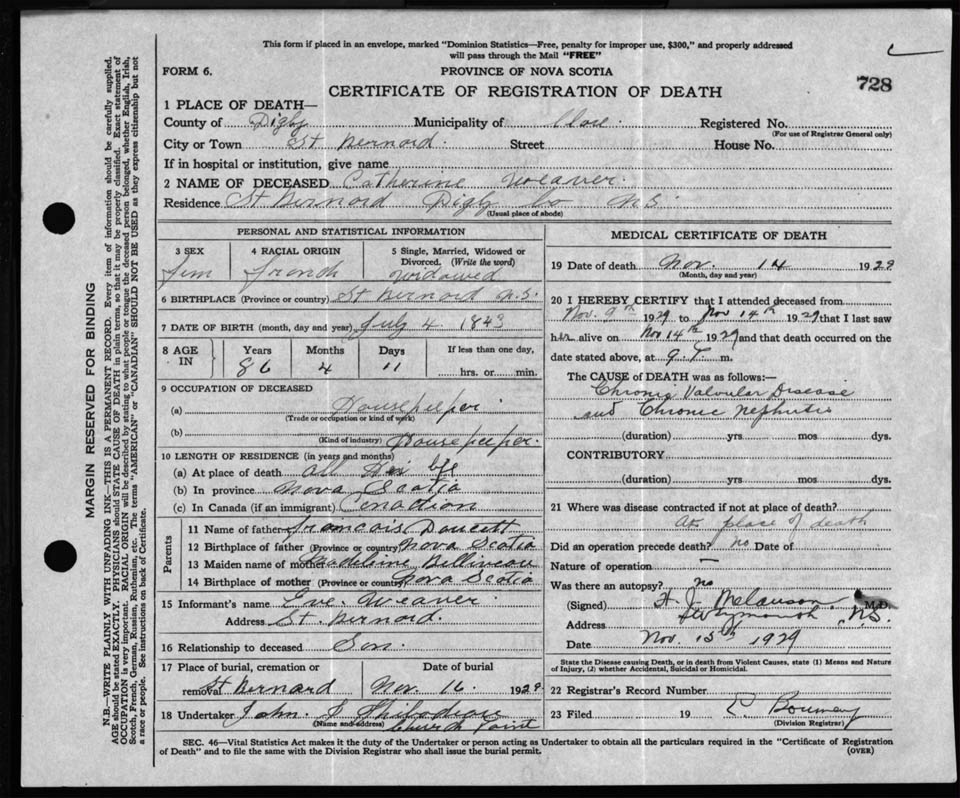 This form if placed in an envelope, marked "Dominion Statistics—Free, penalty for improper use, $300," and properly addressed
will pass through the Mail "FREE"
FORM 6.
PROVINCE OF NOVA SCOTIA
CERTIFICATE OF REGISTRATION OF DEATH
728
1 PLACE OF DEATH—
County of Digby Municipality of Clare. Registered No.
(For use of Registrar General only)
City or Town St Bernard. Street House No.
If in hospital or institution, give name
2 NAME OF DECEASED Catherine Weaver.
Residence St Bernard Digby Co N.S.
(Usual place of abode)
PERSONAL AND STATISTICAL INFORMATION
3 SEX Fem
4 RACIAL ORIGIN French
5 Single, Married, Widowed or Divorced. (Write the word) Widowed
6 BIRTHPLACE (Province or country) St Bernard N.S.
7 DATE OF BIRTH (month, day and year) July 4. 1843
8 AGE IN Years 86 Months 4 Days 11 If less than one day, hrs. or min.
9 OCCUPATION OF DECEASED
(a) Housekeeper
(Trade or occupation or kind of work)
(b) Housekeeper.
(Kind of industry)
10 LENGTH OF RESIDENCE (in years and months)
(a) At place of death all her life
(b) In province Nova Scotia
(c) In Canada (if an immigrant) Canadian
Parents
11 Name of father Francois Doucett
12 Birthplace of father (Province or country) Nova Scotia
13 Maiden name of mother Madeleine
14 Birthplace of mother (Province or country) Nova Scotia
15 Informant's name Eve. Weaver.
Address St. Bernard.
16 Relationship to deceased Son.
17 Place of burial, cremation or removal St Bernard
Date of burial Nov. 16. 1929.
18 Undertaker John. J Thibodeau
(Name and address) Church Point
MEDICAL CERTIFICATE OF DEATH
19 Date of death Nov. 14 1929
(Month, day and year)
20 I HEREBY CERTIFY that I attended deceased from
Nov. 9th 1929 to Nov 14th 1929 that I last saw
her alive on Nov 14th 1929 and that death occurred on the
date stated above, at 9. m.
The CAUSE of DEATH was as follows:—
Chronic Valvular Disease
and Chronic Nephritis
(duration) yrs. mos dys.
CONTRIBUTORY
(duration) yrs. mos dys.
21 Where was disease contracted if not at place of death?
At place of death
Did an operation precede death? no Date of
Nature of operation —
Was there an autopsy? no
(Signed) H. J. Melanson M.D.
Address Weymouth, N.S.
Date Nov. 15th 1929
State the Disease causing Death, or in death from Violent Causes, state (1) Means and Nature
of Injury, (2) whether Accidental, Suicidal or Homicidal.
22 Registrar's Record Number
23 Filed 19
(Division Registrar)
SEC. 46—Vital Statistics Act makes it the duty of the Undertaker or person acting as Undertaker to obtain all the particulars required in the "Certificate of Registration
of Death" and to file the same with the Division Registrar who shall issue the burial permit. (OVER)
MARGIN RESERVED FOR BINDING
N.B.—WRITE PLAINLY WITH UNFADING INK—THIS IS A PERMANENT RECORD. Every item of information should be carefully supplied.
AGE should be stated EXACTLY. PHYSICIANS should STATE CAUSE OF DEATH in plain terms, so that it may be properly classified. Exact statement of
OCCUPATION is very important. RACIAL ORIGIN will be described by stating to what people or tongue the deceased person belonged, whether English, Irish,
Scotch, French, German, Russian, Ruthenian, etc. The terms "AMERICAN" or "CANADIAN" SHOULD NOT BE USED as they express citizenship but not
a race or people. See instructions on back of Certificate.